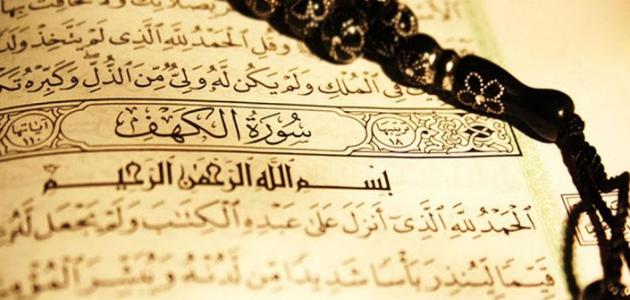 وَقُلِ ٱلْحَمْدُ لِلَّهِ ٱلَّذِى لَمْ يَتَّخِذْ وَلَدًا
فِى ٱلْمُلْكِ وَلَمْ يَكُن لَّهُۥ وَلِىٌّ مِّنَ ٱلذُّلِّ وَكَبِّرْهُ تَكْ
ترتيبها ١٨ سُورَةُ الكَهْفِ آياتها ١١٠
بِسْمِ اللهِ الرَّحْمَٰنِ الرَّحِيمِ
ٱلْحَمْدُ لِلَّهِ ٱلَّذِىٓ أَنزَلَ عَلَىٰ عَبْدِهِ ٱلْكِتَٰبَ وَلَمْ يَجْعَل لَّهُۥ
قَيِّمًا لِّيُنذِرَ بَأْسًا شَدِيدًا مِّن لَّدُنْهُ وَيُبَشِّرَ ٱلْمُؤْمِ